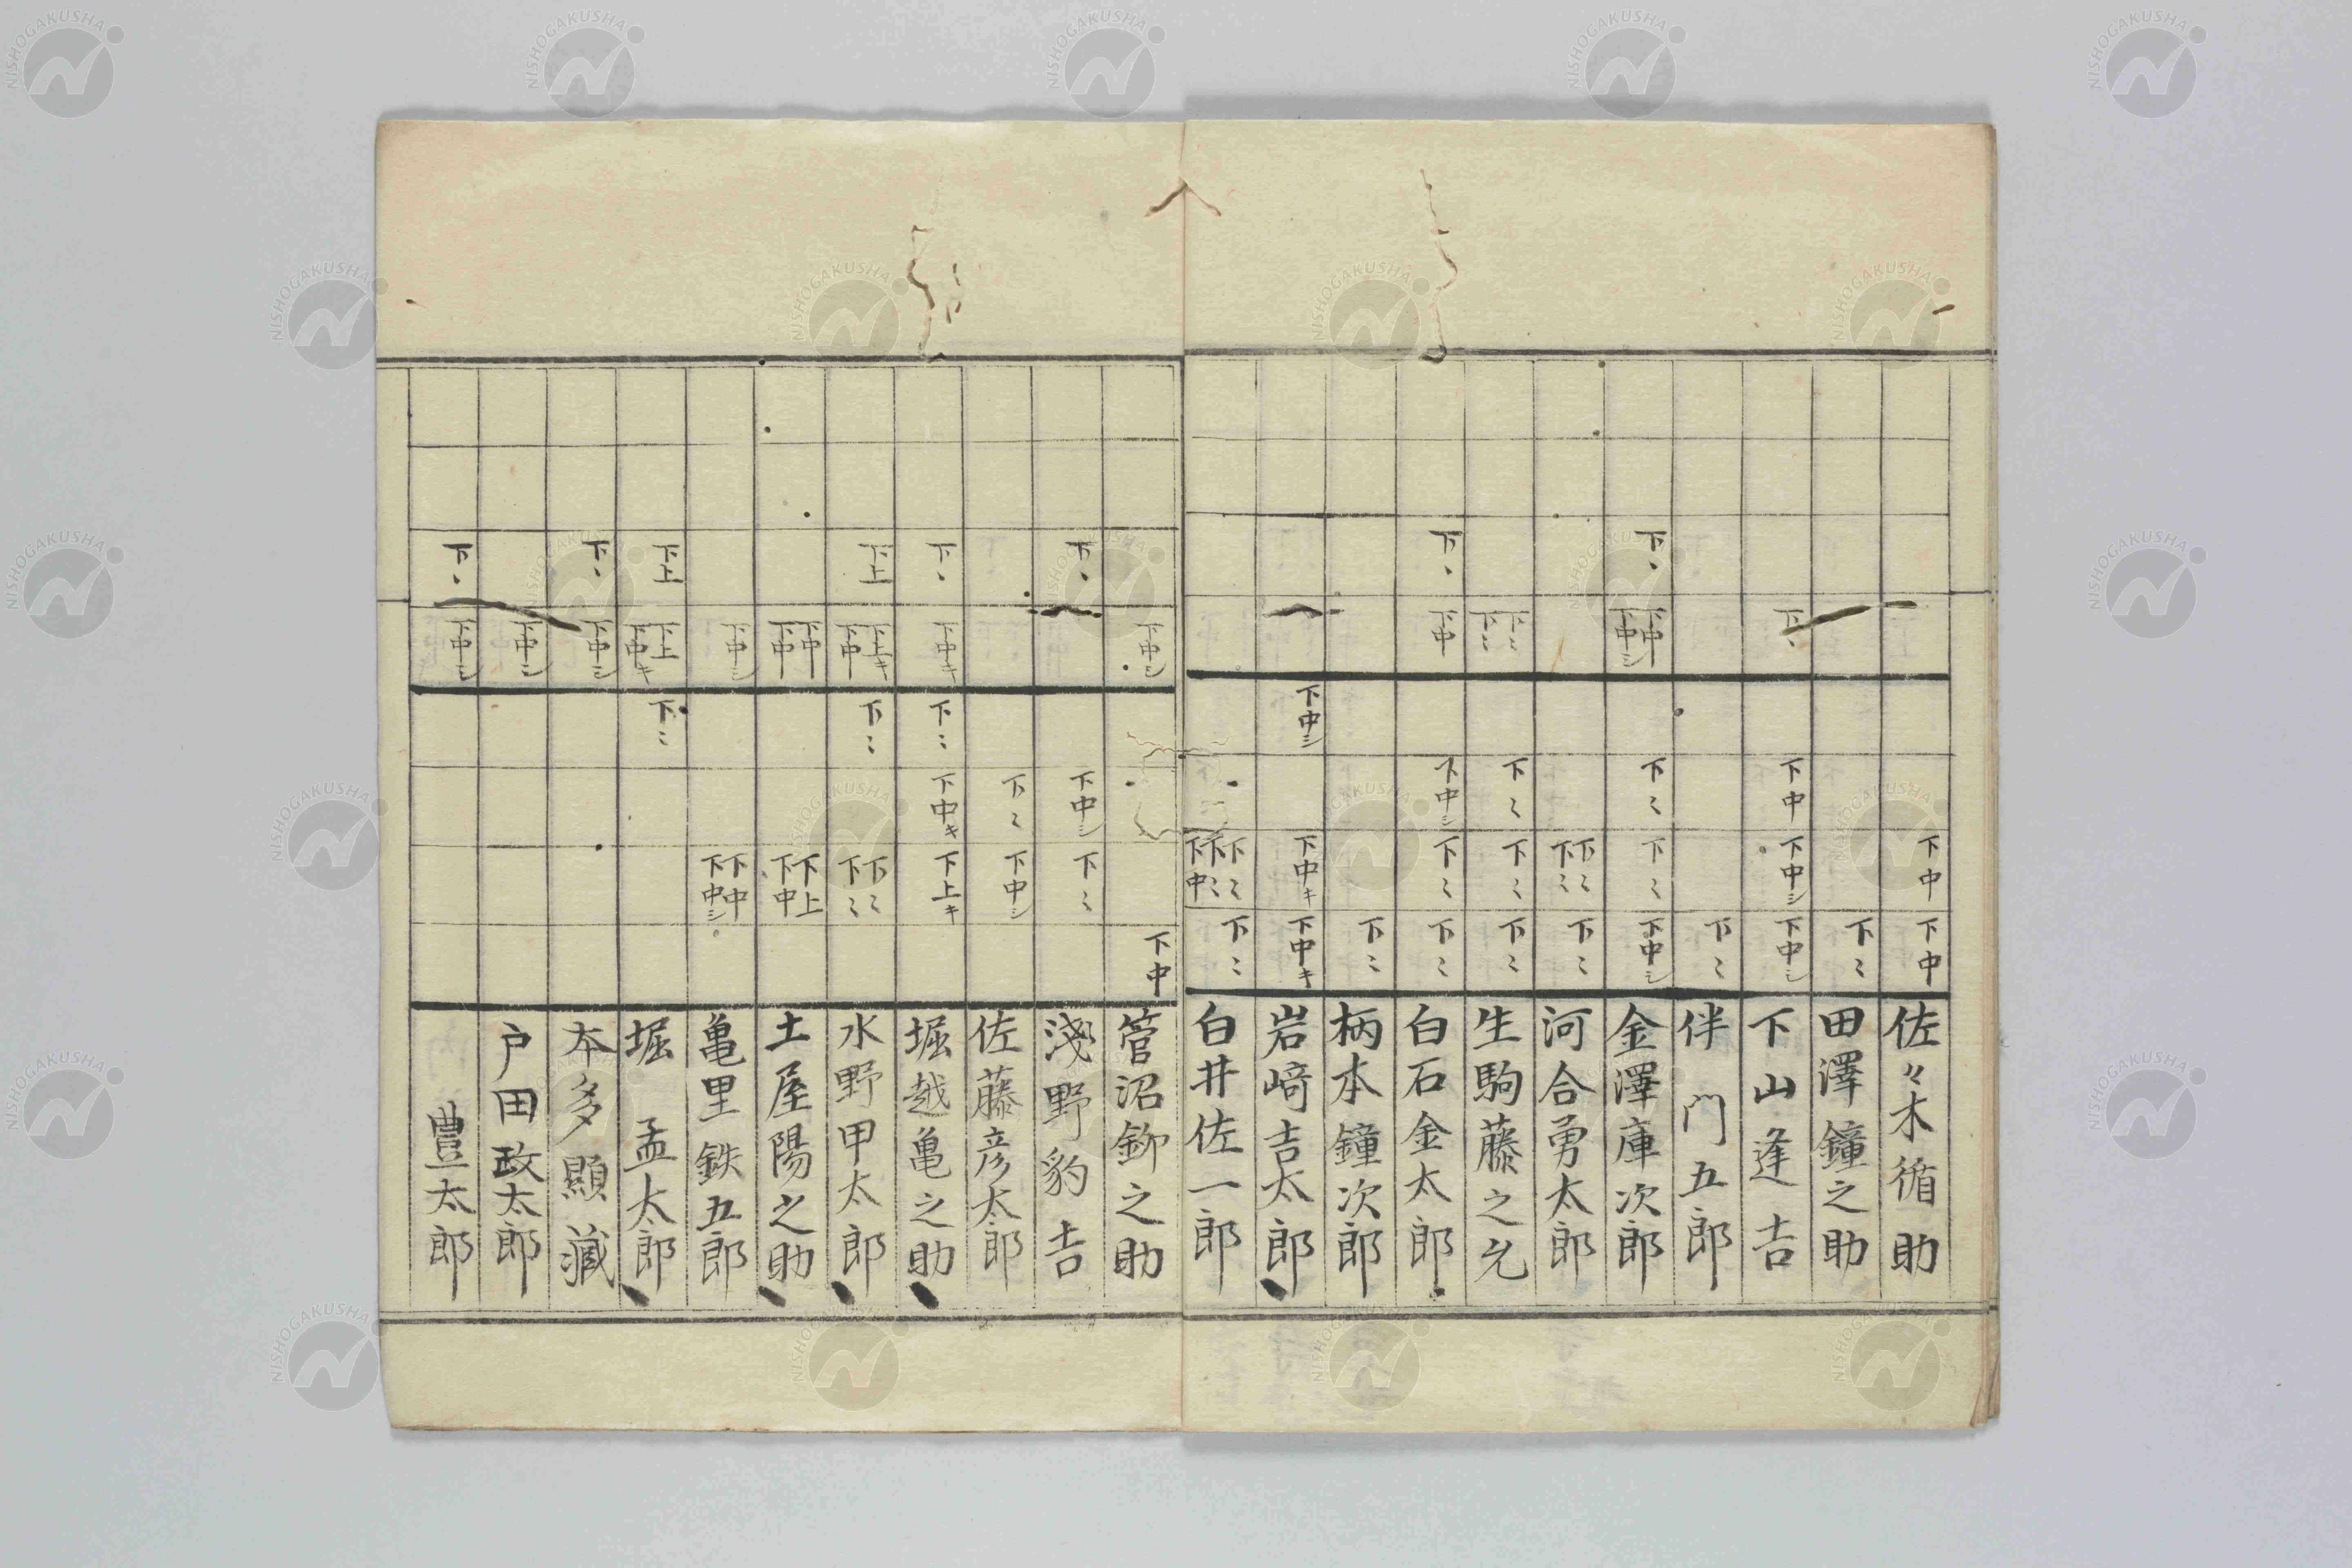 下中
下中
佐々木循助
下〻
田澤鐘之助
下、
下中
下中シ
下中シ
下山逢吉
下〻
伴門五郎
下、
下中
下中シ
下〻
下〻
下中シ
金澤庫次郎
下〻
下〻
下〻
河合勇太郎
下〻
下〻
下〻
下〻
下〻
生駒藤之允
下、
下中
下中シ
下〻
下〻
白石金太郎
下〻
柄本鐘次郎
下中シ
下中キ
下中キ
岩﨑吉太郎
下〻
下〻
下中
下〻
白井佐一郎
下中シ
下中
管沼鉚之助
下、
下中シ
下〻
淺野豹吉
下〻
下中シ
佐藤彦太郎
下、
下中キ
下〻
下中キ
下上キ
堀越亀之助
下上
下上キ
下中
下〻
下〻
下〻
水野甲太郎
下中
下中
下上
下中
土屋陽之助
下中シ
下中
下中シ
亀里鉄五郎
下上
下上
下中キ
下〻
堀孟太郎
下、
下中シ
本多顯藏
下中シ
戸田政太郎
下、
下中シ
豊太郎
NISHOGAKUSHA